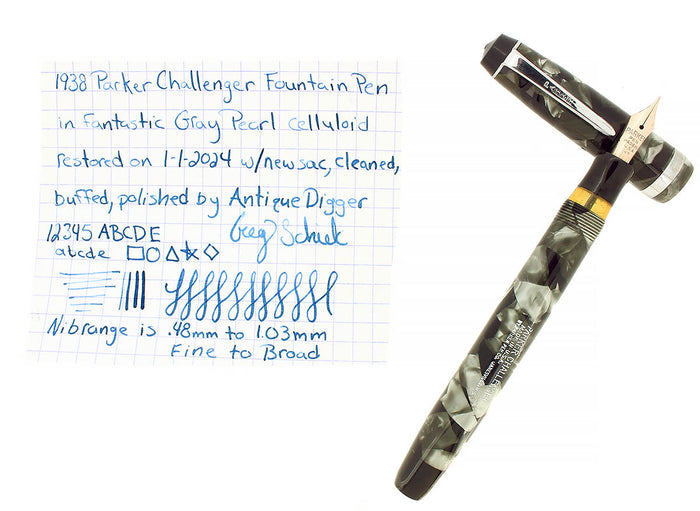 1938 Parker Challenger Fountain Pen
in Fantastic Gray Pearl celluloid
restored on 1-1-2024 w/new sac, cleaned,
buffed, polished by Antique Digger
12345 ABCDE
abcde
Greg Schiek
Nibrange is .48mm to 1.03mm
Fine to Broad
PARKER
PEN
PARKER CHALLENGER